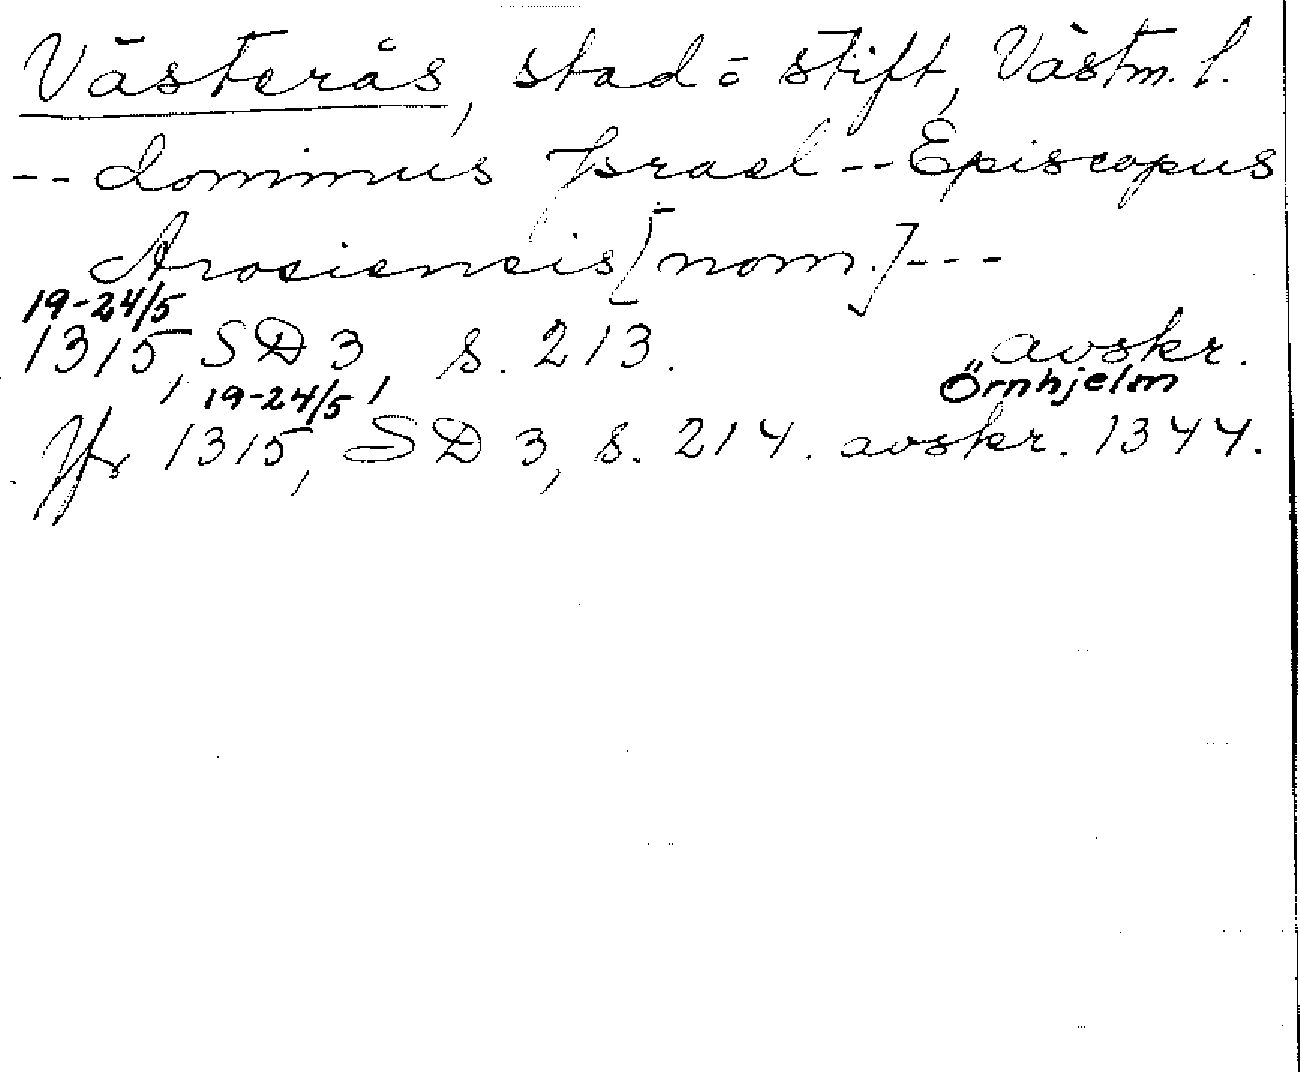 Västerås, stad o stift, Västm. l.
-- dominus Israel -- Episcopus
Arosiensis [nom.] ---
19-24/5
1315, SD 3, s. 213. avskr.
19-24/5 Örnhjelm
Jfr 1315, SD 3, s. 214. avskr. 1344.